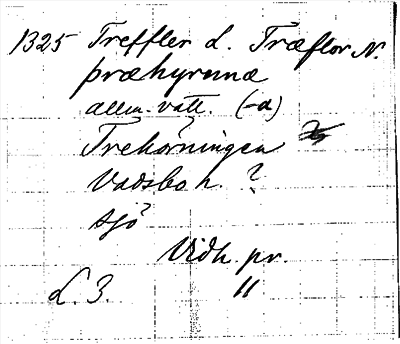 1325 Treffler L. Træflor N.
þræhyrnnæ
allm. vatt. (-a)
Trehörningen
Vadsbo h. ?
sjö
Vidh. pr.
L. 3. 11